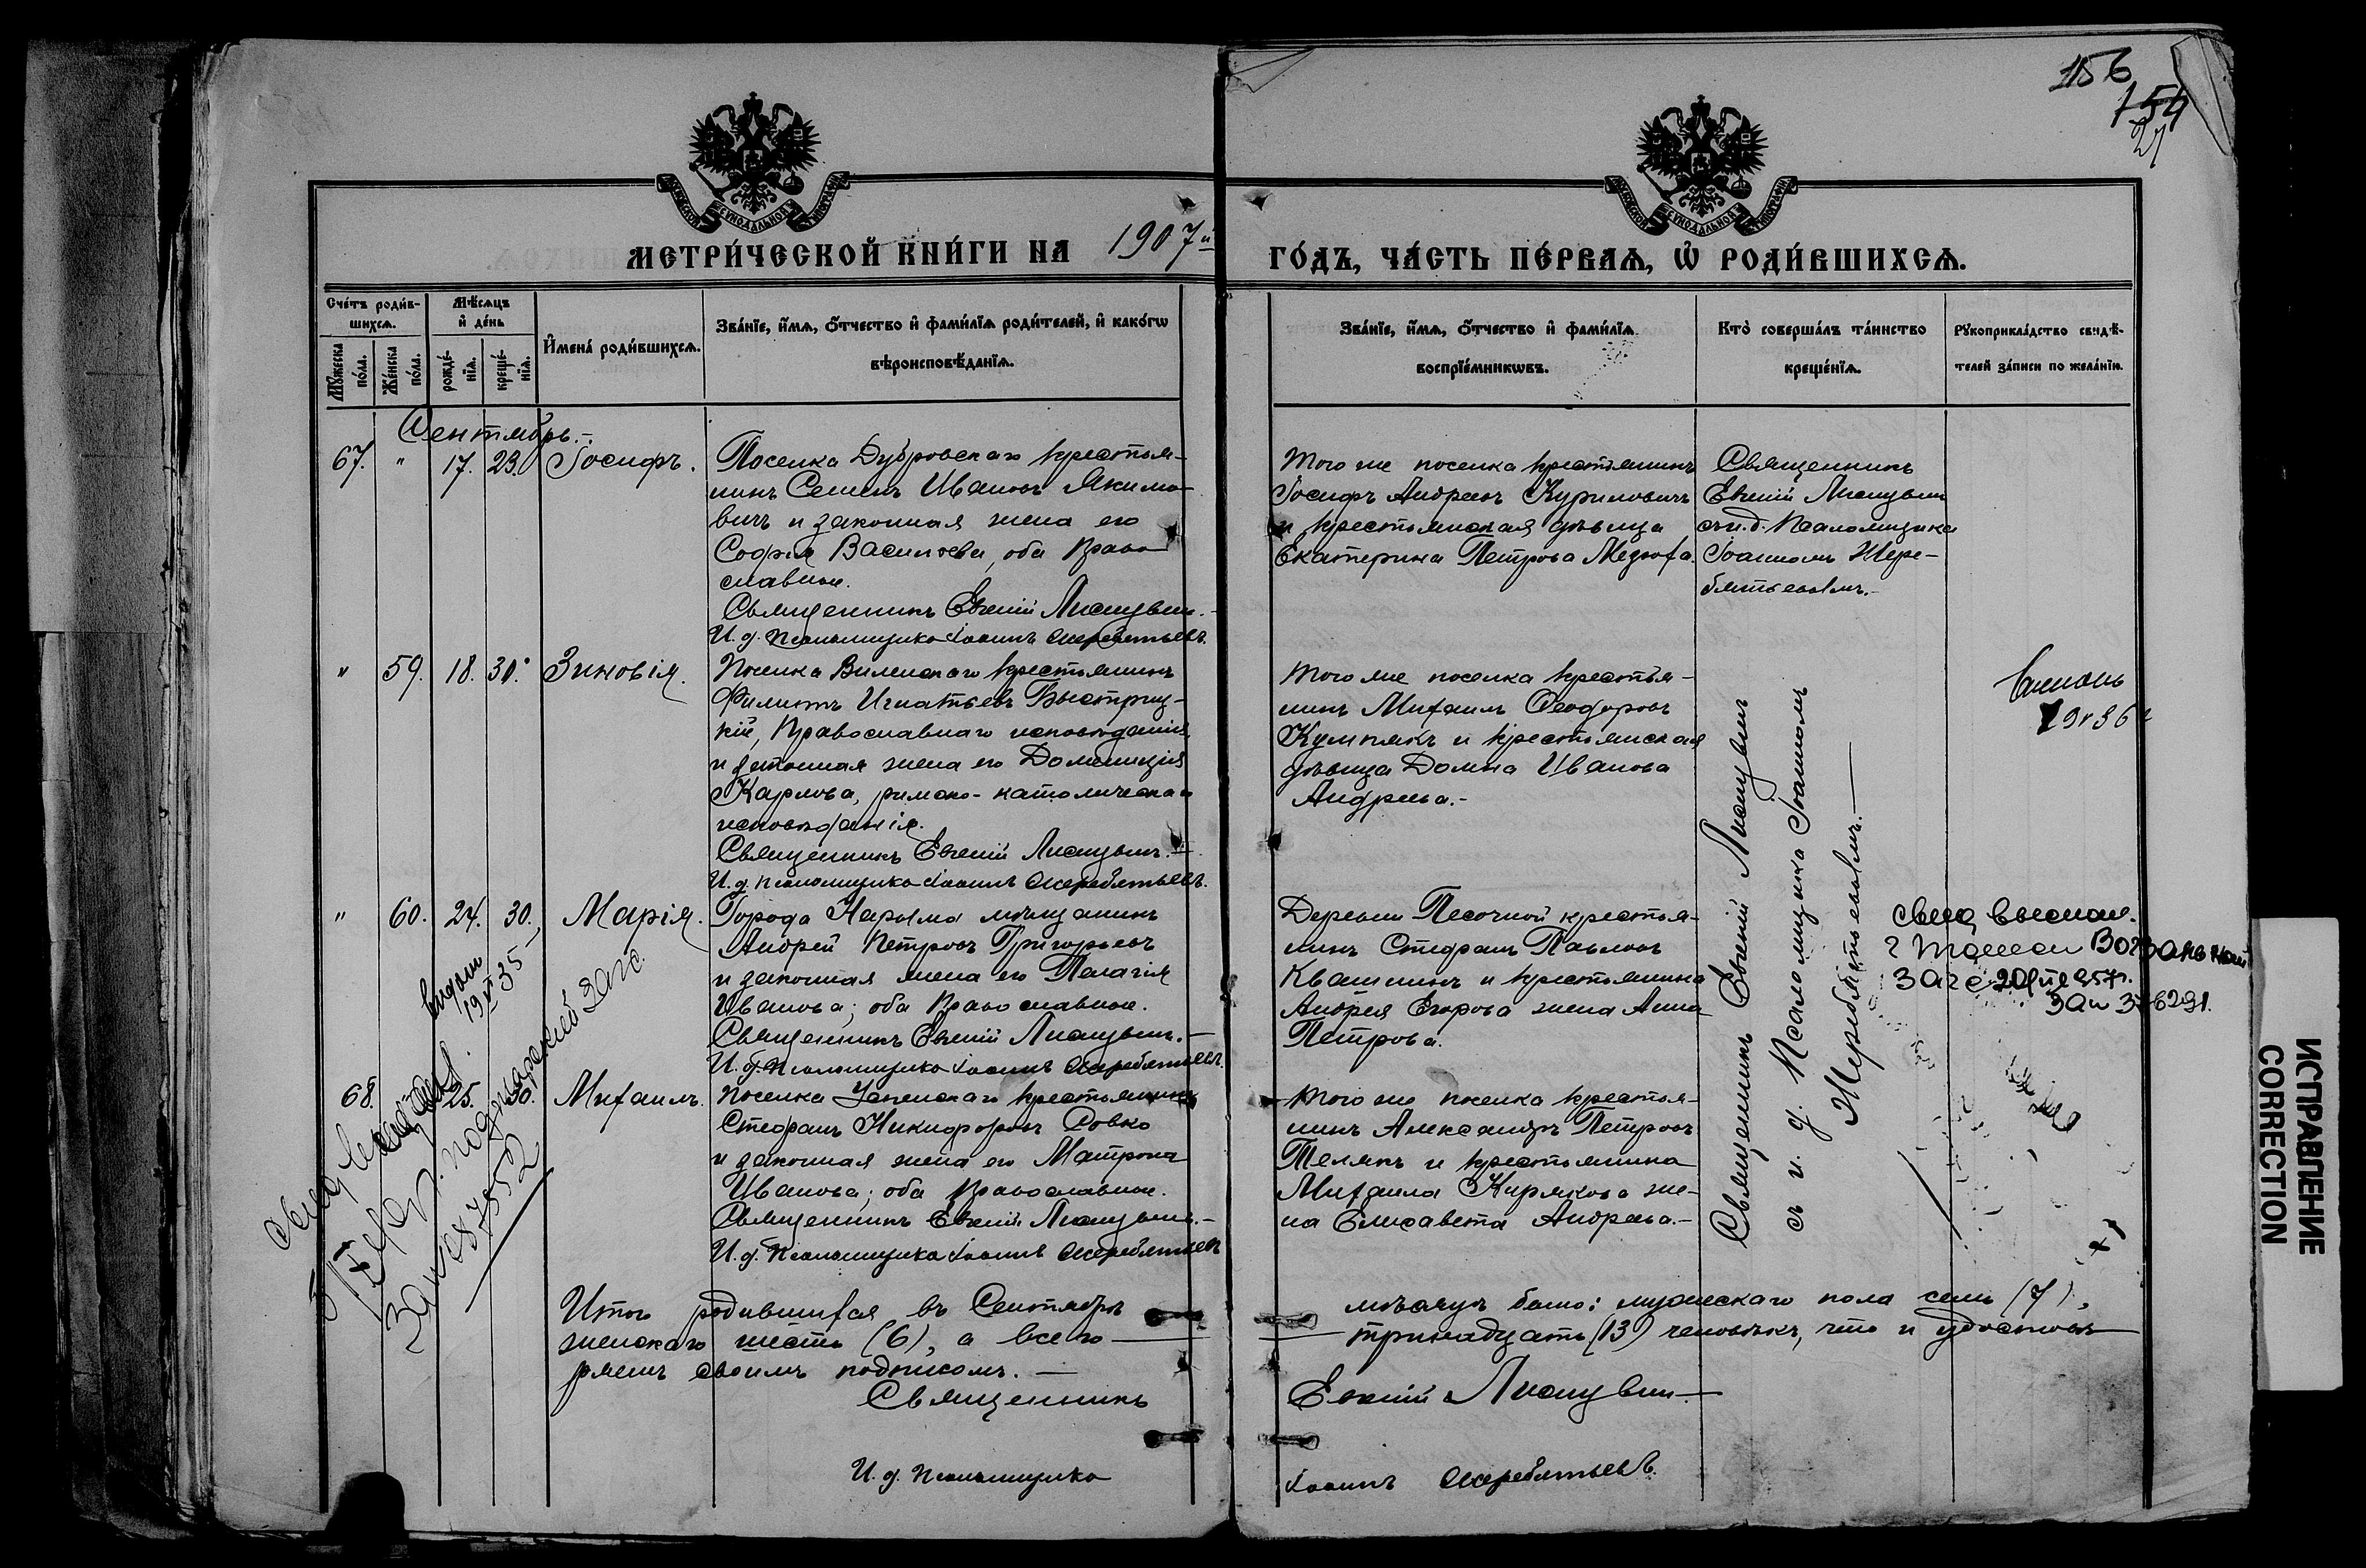 156
154
21
МЕТРИ́ЧЕСКОЙ КНИ́ГИ НА 1907й ГО́ДЪ, ЧА́СТЬ ПЕ́РВАѦ, Ѡ҆ РОДИ́ВШИХСѦ.
Сче́тъ роди́в-
шихсѧ.
Мꙋ́жеска по́ла.
Же́нска по́ла.
Мѣ́сѧцъ
и҆ де́нь
рожде́-
нїѧ.
креще́-
нїѧ.
И҆мена̀ роди́вшихсѧ.
Зва́нїе, и҆́мѧ, ѻ҆́тчество и҆ фами́лїѧ роди́телей, и҆ како́гѡ
вѣроисповѣ́данїѧ.
Зва́нїе, и҆́мѧ, ѻ҆́тчество и҆ фами́лїѧ
воспрїе́мникѡвъ.
Кто̀ соверша́лъ та́инство
креще́нїѧ.
Рꙋкоприкла́дство свидѣ́-
телей за́писи по жела́нїю.
Сентябрь.-
67. " 17. 23. Іосифъ.
Поселка Дубровскаго крестья-
нинъ Семенъ Ивановъ Якимо-
вичъ и законная жена его
Софія Васильева, оба Право-
славные.
Священникъ Евгеній Лисицынъ.
И. д. псаломщика Іоаннъ Жеребятьевъ.
Того же поселка крестьянинъ
Іосифъ Андреевъ Куриловичъ
и крестьянская дѣвица
Екатерина Петрова
Священникъ
Евгеній Лисицынъ
съ и. д. Псаломщика
Іоанномъ Жере-
бятьевымъ.-
" 59. 18. 30. Зиновія.
Поселка Виленскаго крестьянинъ
Филиппъ Игнатьевъ Быстриц-
кій, Православнаго исповѣданія
и законная жена его Домицеція
Карлова, римско-католическаго
исповѣданія.
Священникъ Евгеній Лисицынъ.
И. д. псаломщика Іоаннъ Жеребятьевъ.
Того же поселка крестья-
нинъ Михаилъ Ѳеодоровъ
и крестьянская
дѣвица Домна Иванова
Андреева.-
" 60. 24. 30. Марія.
Города Нарыма мѣщанинъ
Андрей Петровъ Григорьевъ
и законная жена его Пелагія
Иванова; оба Православные.
Священникъ Евгеній Лисицынъ.-
И. д. псаломщика Іоаннъ Жеребятьевъ.
Деревни Песочной крестья-
нинъ Стефанъ Павловъ
Квашнинъ и крестьянина
Андрея Егорова жена Анна
Петрова.
68. 25. 30. Михаилъ.
Поселка крестьянинъ
Стефанъ Никифоровъ Совко
и законная жена его Матрона
Иванова; оба Православные.
Священникъ Евгеній Лисицынъ.-
И. д. Псаломщика Іоаннъ Жеребятьевъ
Того же поселка крестья-
нинъ Александръ Петровъ
Телякъ и крестьянина
Михаила Кирякова же-
на Елисавета Андреева.-
Священникъ Евгеній Лисицынъ
съ и. д. Псаломщика Іоанномъ
Жеребятьевымъ.-
Итого родившихся въ Сентябрѣ мѣсяцѣ было: мужескаго пола семь (7),
женскаго шесть (6), а всего тринадцать (13) человѣкъ, что и удостовѣ-
ряемъ своимъ подписомъ.-
Священникъ Евгеній Лисицынъ
И. д. псаломщика Іоаннъ Жеребятьевъ.
ИСПРАВЛЕНИЕ
CORRECTION